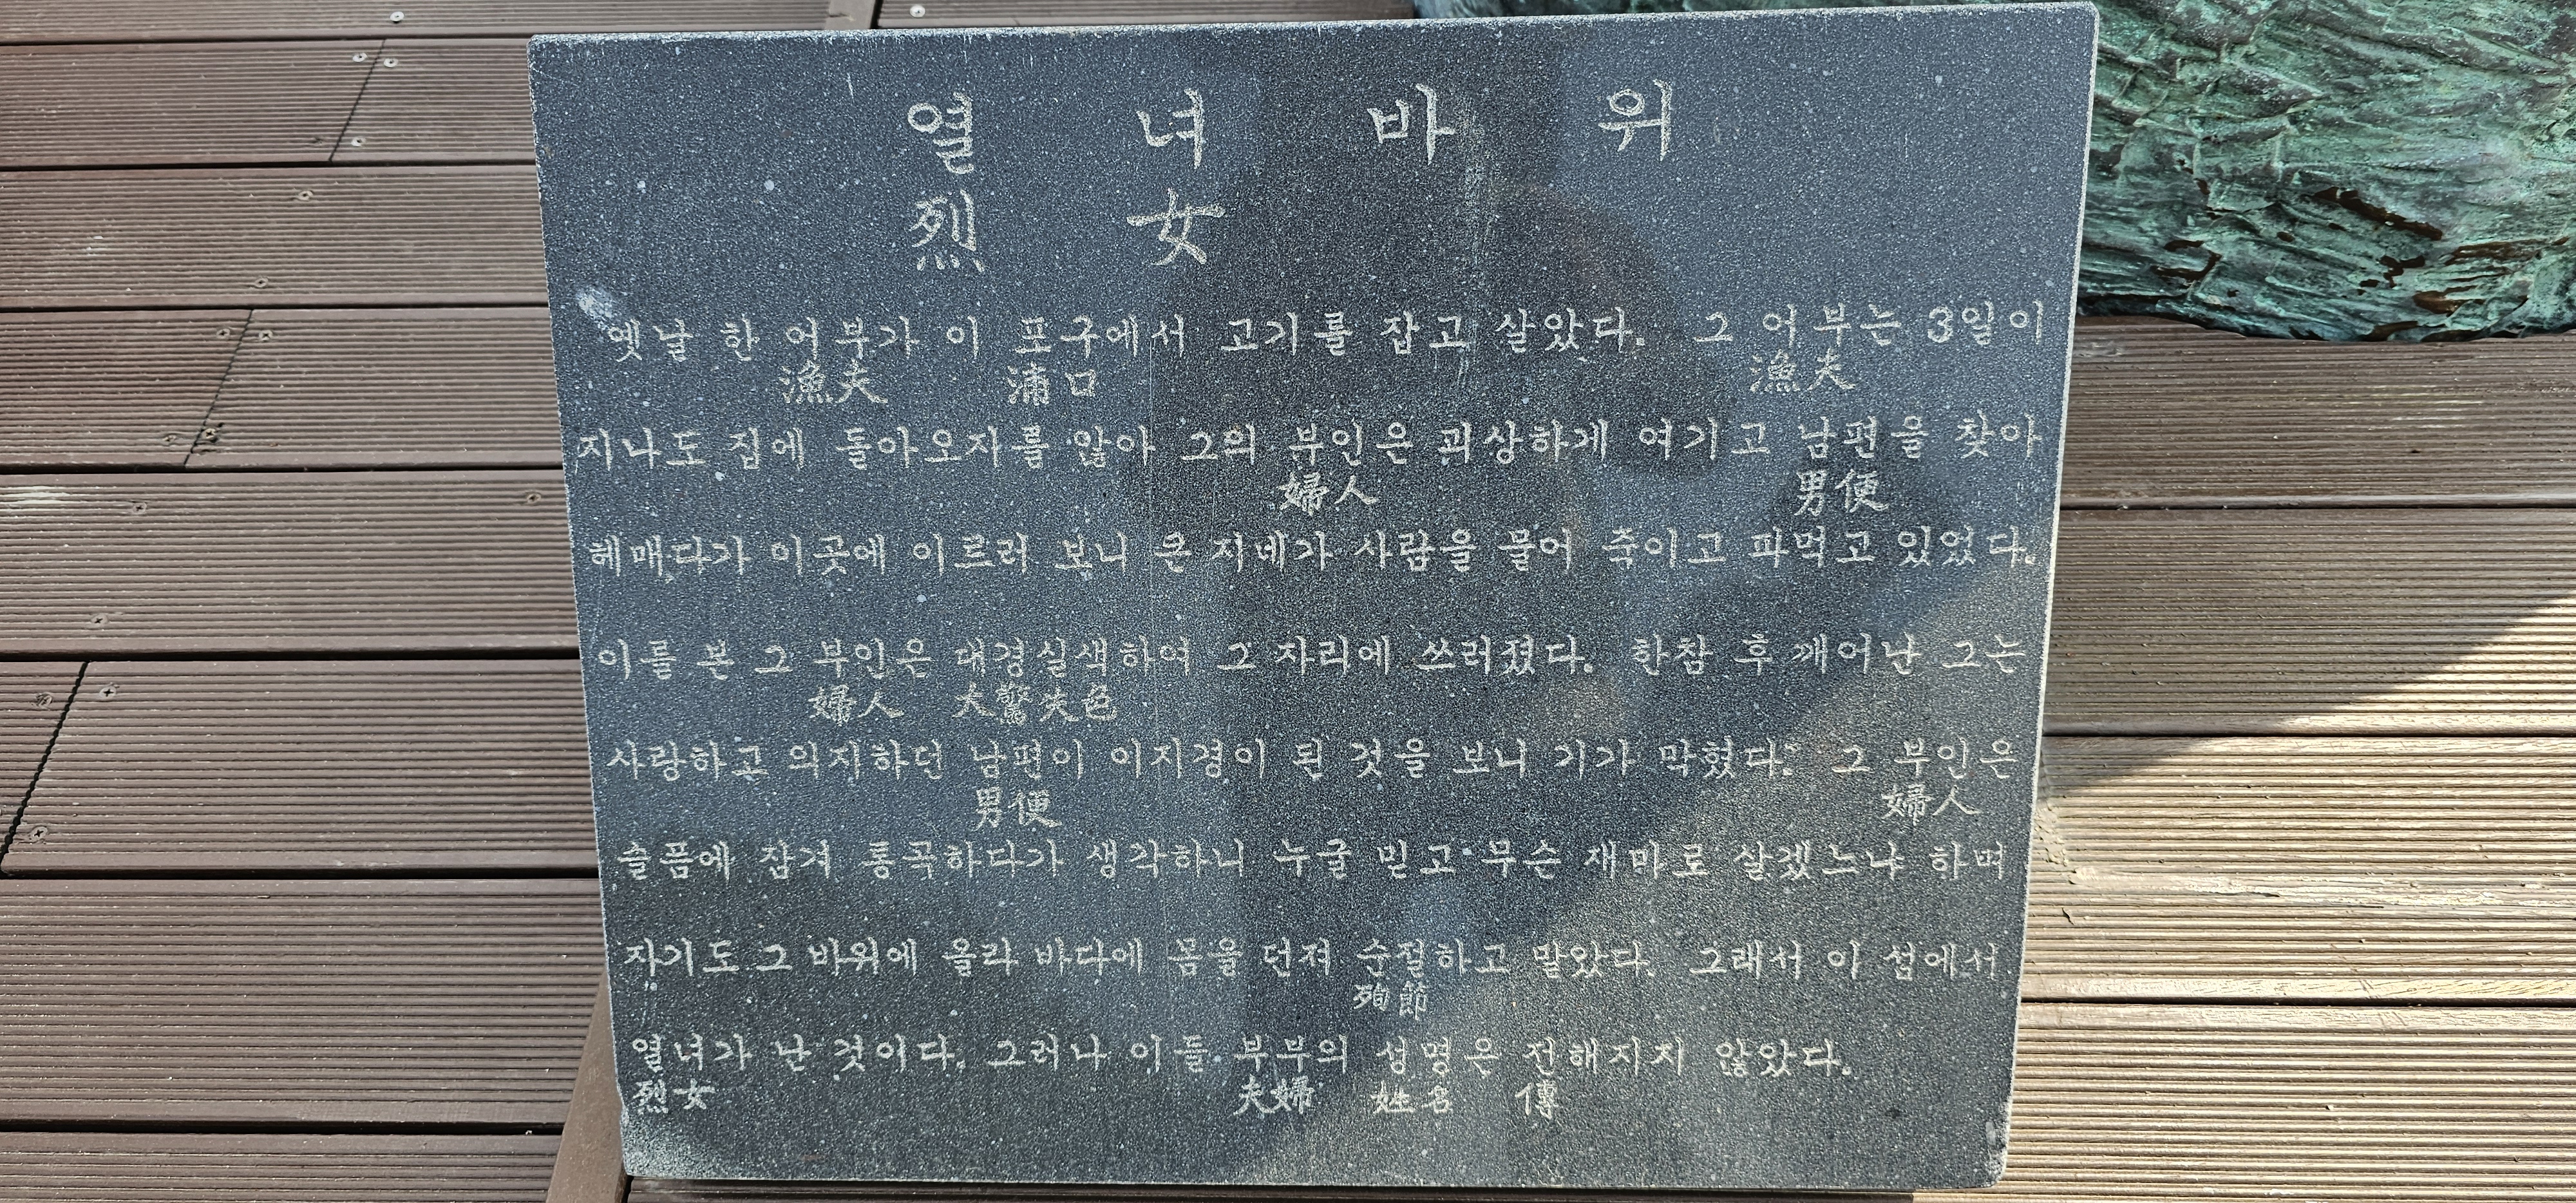 열 녀 바 위
烈 女
옛날 한 어부가 이 포구에서 고기를 잡고 살았다. 그 어부는 3일이
漁夫 浦口 漁夫
지나도 집에 돌아오지를 않아 그의 부인은 괴상하게 여기고 남편을 찾아
婦人 男便
헤매다가 이곳에 이르러 보니 큰 지네가 사람을 물어 죽이고 파먹고 있었다.
이를 본 그 부인은 대경실색하여 그 자리에 쓰러졌다. 한참 후 깨어난 그는
婦人 大驚失色
사랑하고 의지하던 남편이 이지경이 된 것을 보니 기가 막혔다. 그 부인은
男便 婦人
슬픔에 잠겨 통곡하다가 생각하니 누굴 믿고 무슨 재미로 살겠느냐 하며
자기도 그 바위에 올라 바다에 몸을 던져 순절하고 말았다. 그래서 이 섬에서
殉節
열녀가 난 것이다. 그러나 이들 부부의 성명은 전해지지 않았다.
烈女 夫婦 姓名 傳